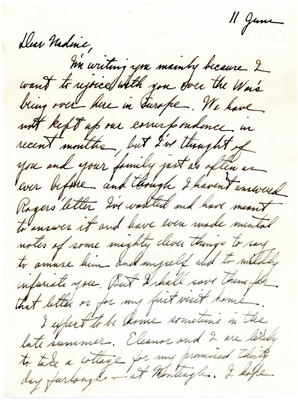 11 June
Dear Nadine,
I'm writing you mainly because I
want to rejoice with you over the War's
being over here in Europe. We have
not kept up our correspondence in
recent months, but I've thought of
you and your family just as often as
ever before and though I haven't answered
Rogers' letter I've wanted and have meant
to answer it and have even made mental
notes of some mighty clever things to say
to amuse him and myself and to mildly
infuriate you. But I shall save them for
that letter or for my first visit home.
I expect to be home sometime in the
late summer. Eleanor and I are likely
to take a cottage for my promised thirty
day furlough — at Monteagle. I hope